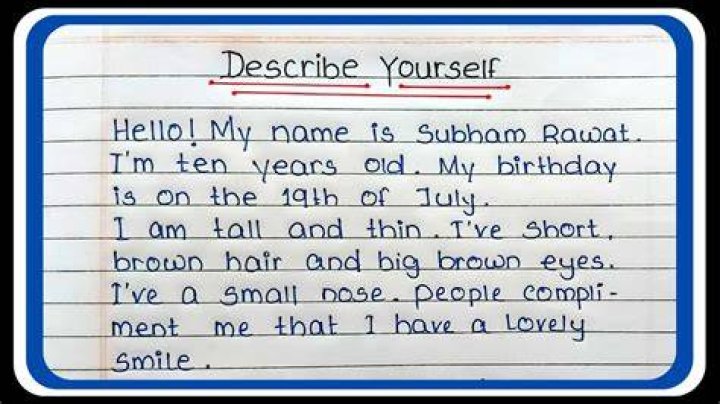 Describe Yourself
Hello! My name is Subham Rawat.
I'm ten years old. My birthday
is on the 19th of July.
I am tall and thin. I've short,
brown hair and big brown eyes.
I've a small nose. People compli-
ment me that I have a lovely
smile.